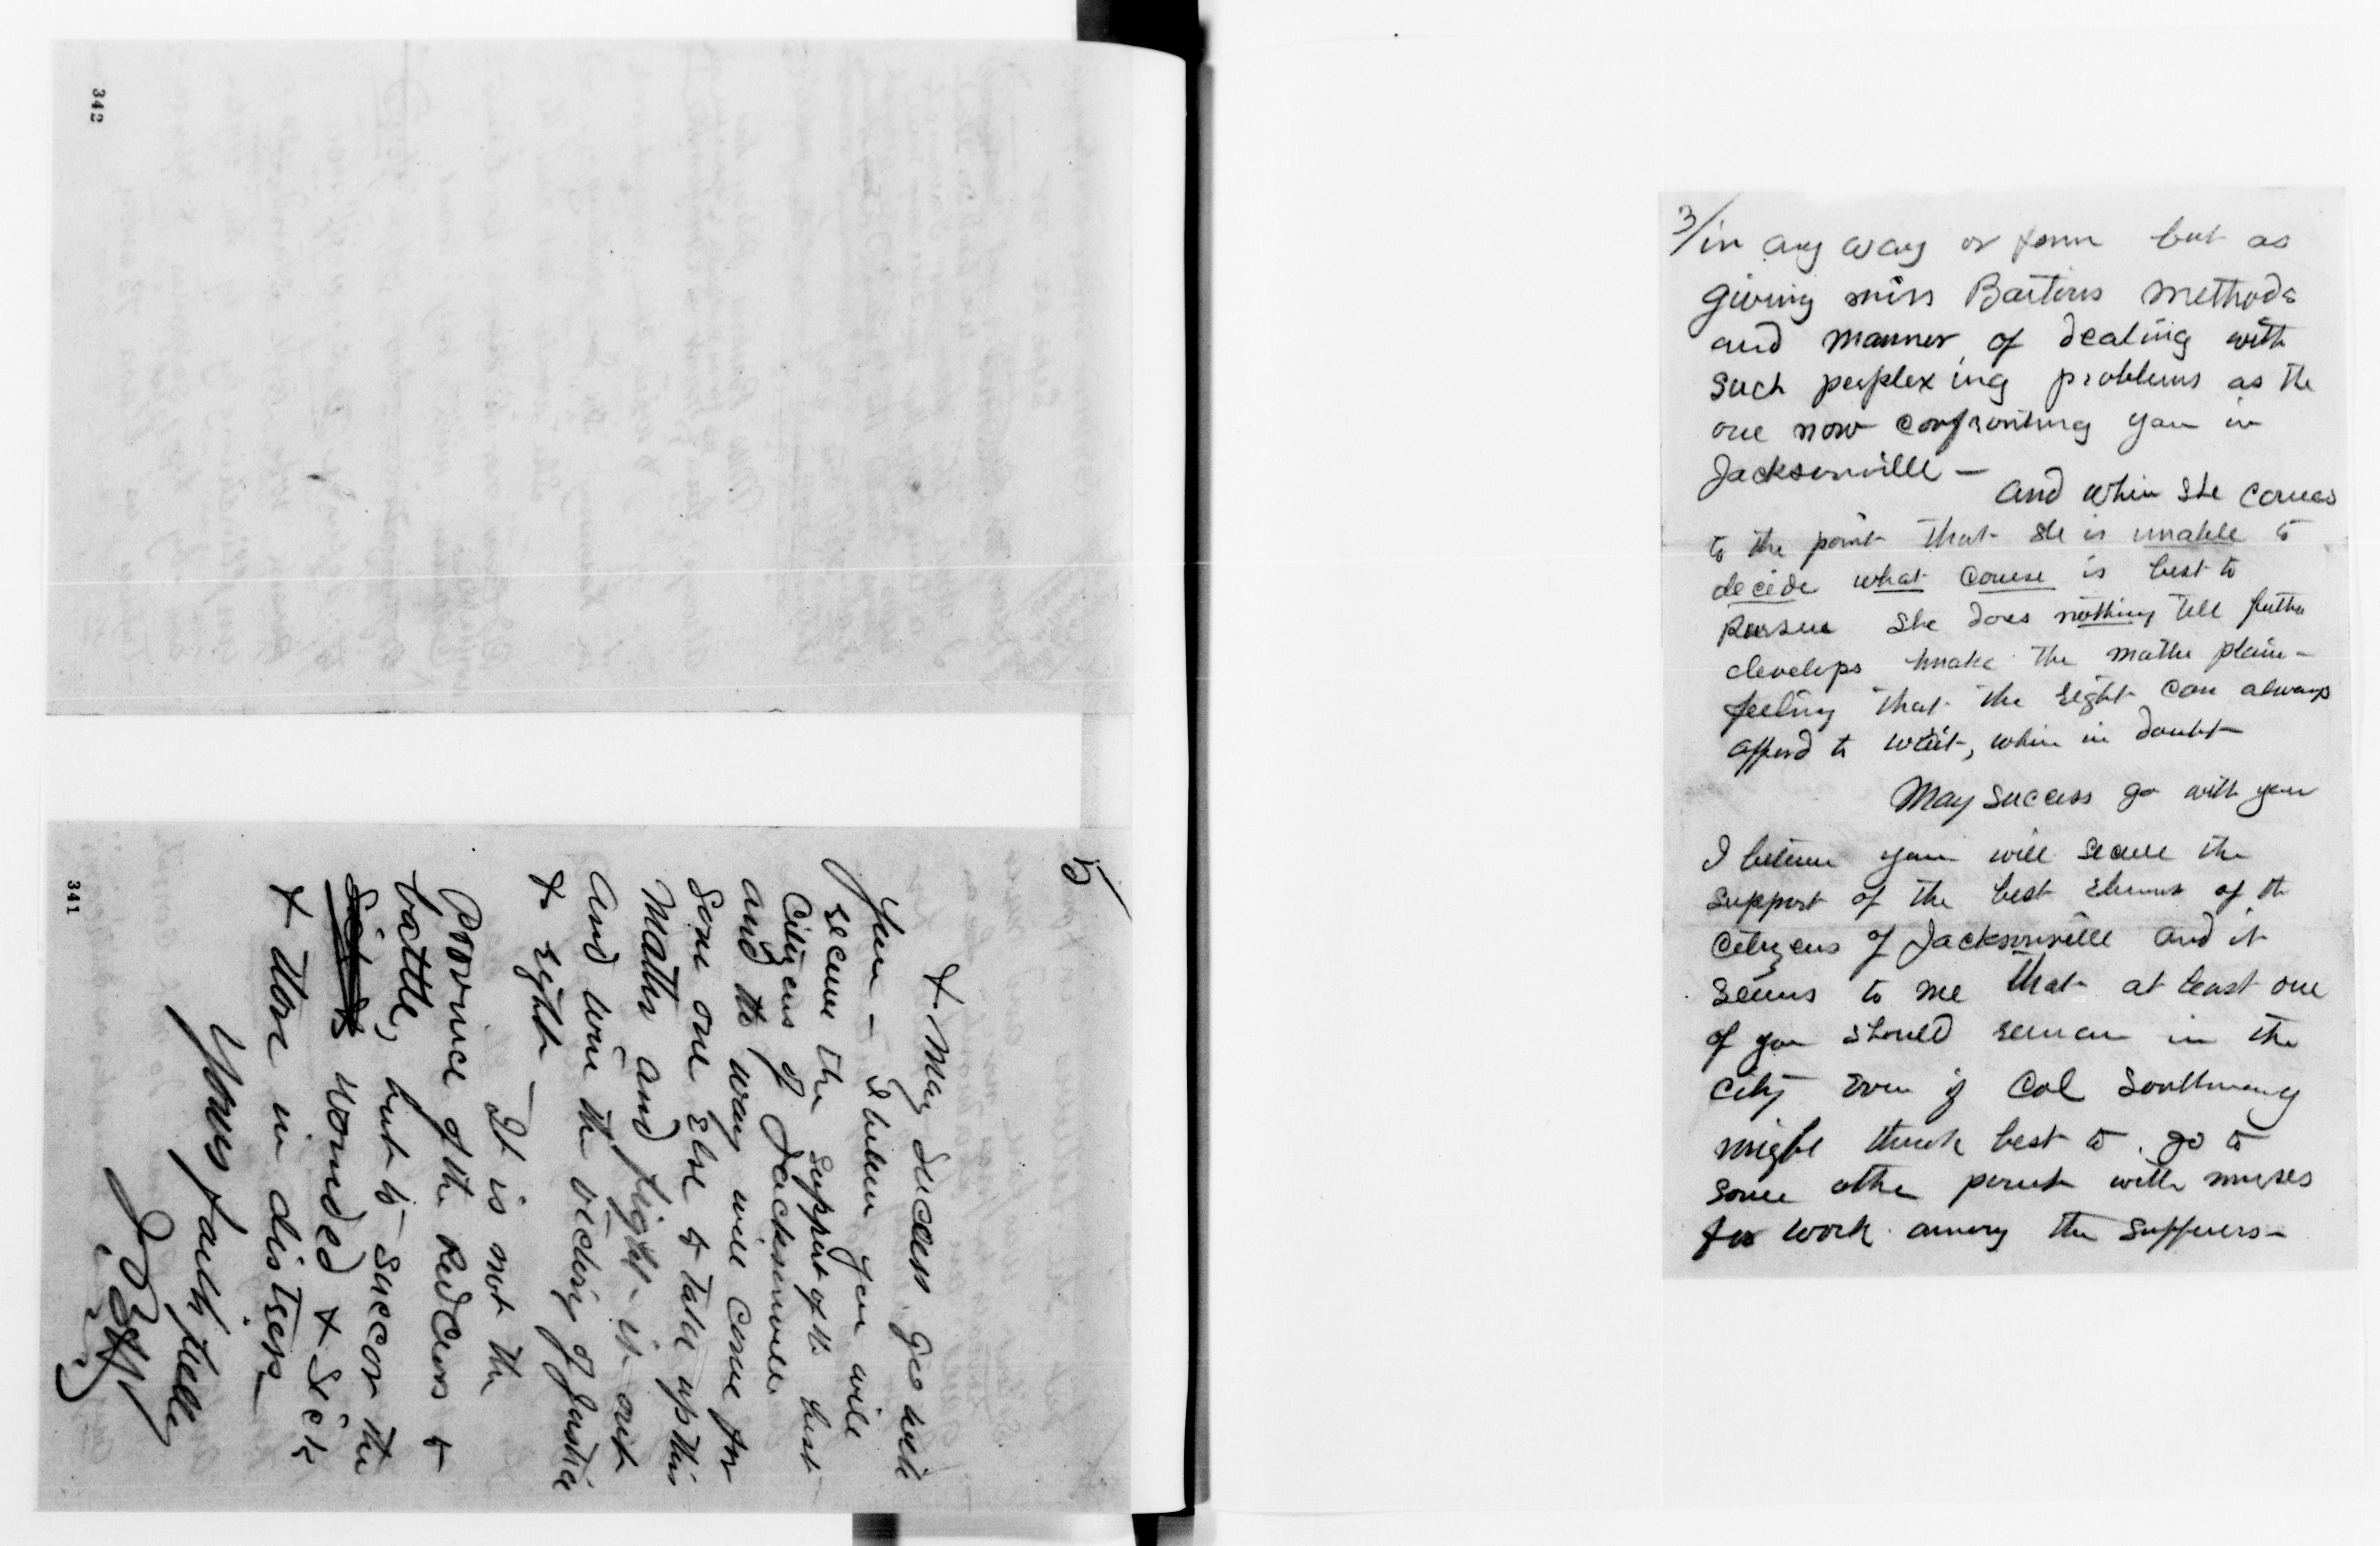 342
341
5/
& May Success go with
you - I believe you will
secure the support of the best
Citizens of Jacksonville
and the way will come for
some one else to take up this
Matter and fight it out
and win the victory of Justice
& right -
It is not the
Province of the Red Cross to
battle, but to succor the
wounded & sick
& those in distress
Yours faithfully
3/ in any way or form but as
giving miss Bartons methods
and manner of dealing with
such perplexing problems as the
one now confronting you in
Jacksonville -
and when she comes
to the point that she is unable to
decide what course is best to
Pursue she does nothing till
develops make the matter plain -
feeling that the right can always
afford to wait, when in doubt
May success go with you
I believe you will secure the
support of the best element of the
Citizens of Jacksonville and it
seems to me that at least one
of you should remain in the
city even if Col Southmayd
might think best to go to
some other point with nurses
for work among the sufferers -